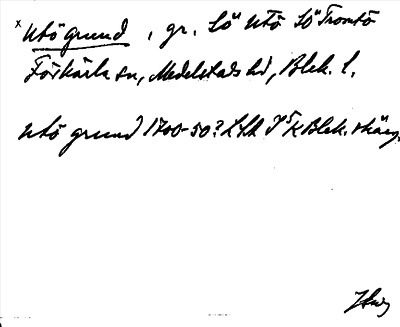 × Utö grund, gr. SÖ Utö SÖ Tromtö
Förkärla sn, Medelstads hd, Blek. l.
Utö grund 1700-50? LSA Blek. skärg.